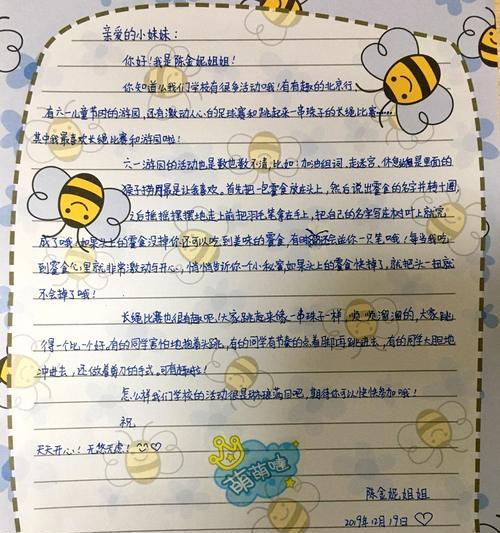 亲爱的小妹妹：
你好！我是陈金妮姐姐！
你知道么我们学校有很多活动哦！有有趣的北京行
有六一儿童节时的游园，还有激动人心的足球赛和跳起来一串珠子的长绳比赛
其中我最喜欢长绳比赛和游园啦！
六一游园的活动也是数也数不清，比如：加曲组词、走迷宫，休息站是里面的
最是让我喜欢。首先把一包零食放在头上，然后说出零食的名字并转十圈，
之后摇摇摆摆地走上前把羽毛笔拿在手上，把自己的名字写在树叶上就完
成了哦！如果头上的零食没掉你还可以吃到美味的零食 有时还会送你一只笔哦！每当我吃
到零食心里就非常激动与开心，悄悄告诉你个小秘密，如果头上的零食快掉了，就把头一扭就
不会掉了哦！
长绳比赛也很有趣呢！大家跳起来像一串珠子一样，顺顺溜溜的，大家跳
得一个比一个好。有的同学害怕地抱着头跳，有的同学有节奏的点着脚再跳进去，有的同学大胆地
冲进去，还做着剪刀的手式，可有趣啦！
怎么样我们学校的活动很是琳琅满目吧，期待你可以快快参加哦！
祝
天天开心！无忧无虑！
萌萌哒
陈金妮姐姐
2019年12月19日